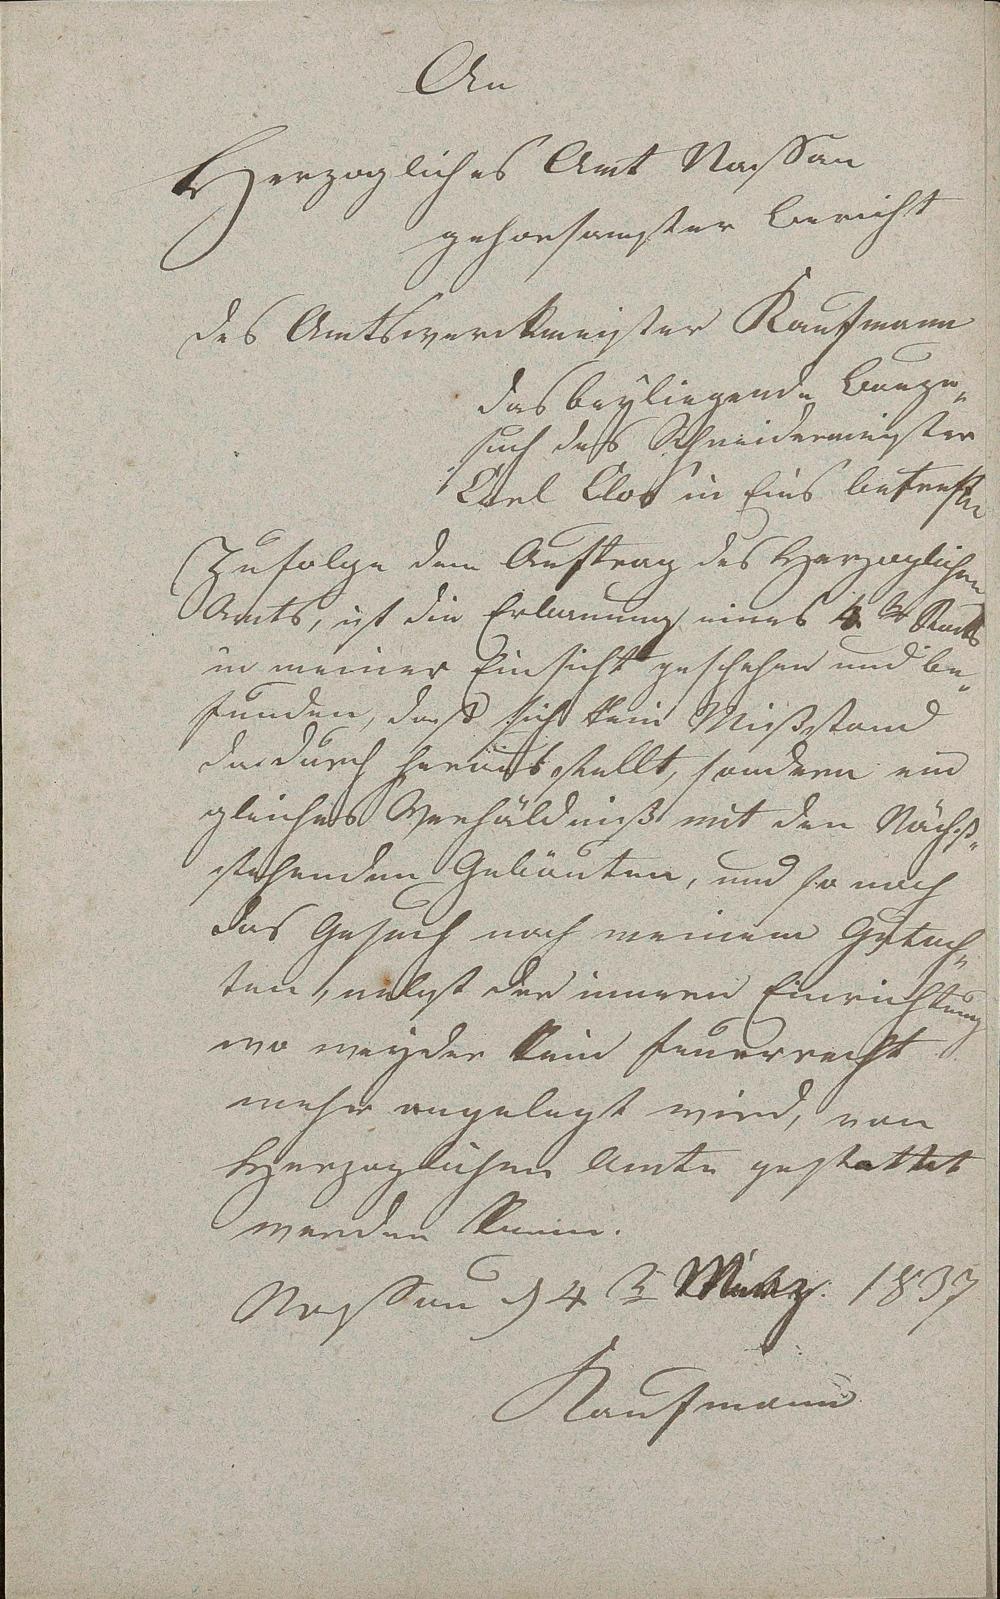 An
Herzogliches Amt Nassau
gehorsamster Bericht
des Amtswerckmeister Kaufmann
das beyliegende Bauge„
such des Schneidermeister
Carl Clos in Ems betreffen
Zufolge dem Auftrag des Herzoglichen
Amts, ist die Erbauung eines 4
in meiner Einsicht geschehen und be„
funden, daß sich kein Mißstand
dadurch herausstellt, sondern ein
gleiches Verhäldniß mit den Nächst„
stehenden Gebäuten, und so nach
das Gesuch nach meinem Gutach„
ten, nebst der innern Einrichtung
wo weyder kein Feuerrecht
mehr angelegt wird, von
Herzoglichem Amte gestattet
werden kann.
Nassau d 4 März. 1837
Kaufmann